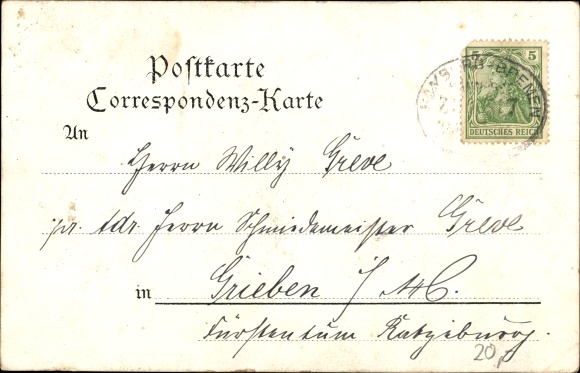 Postkarte
Correspondenz-Karte
5 5
DEUTSCHES REICH
BREMEN
An
Herrn Willy Greve
p. Adr. Herrn Schmiedemeister Greve
in Grieben i/
Fürstentum Ratzeburg.
20,